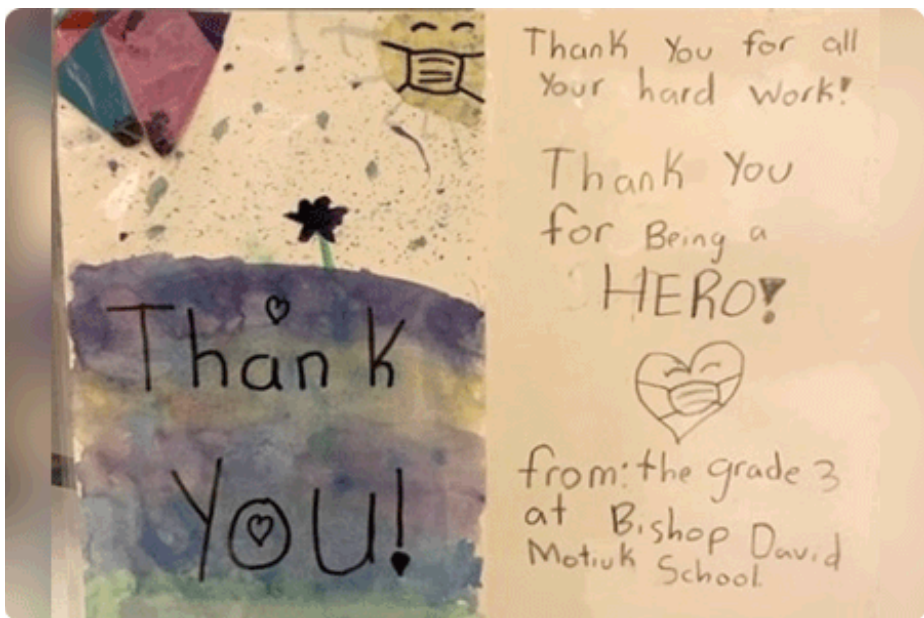 Thank
You!
Thank You for all
Your hard work!
Thank You
for Being a
HERO!
from: the grade 3
at Bishop David
Motiuk School.